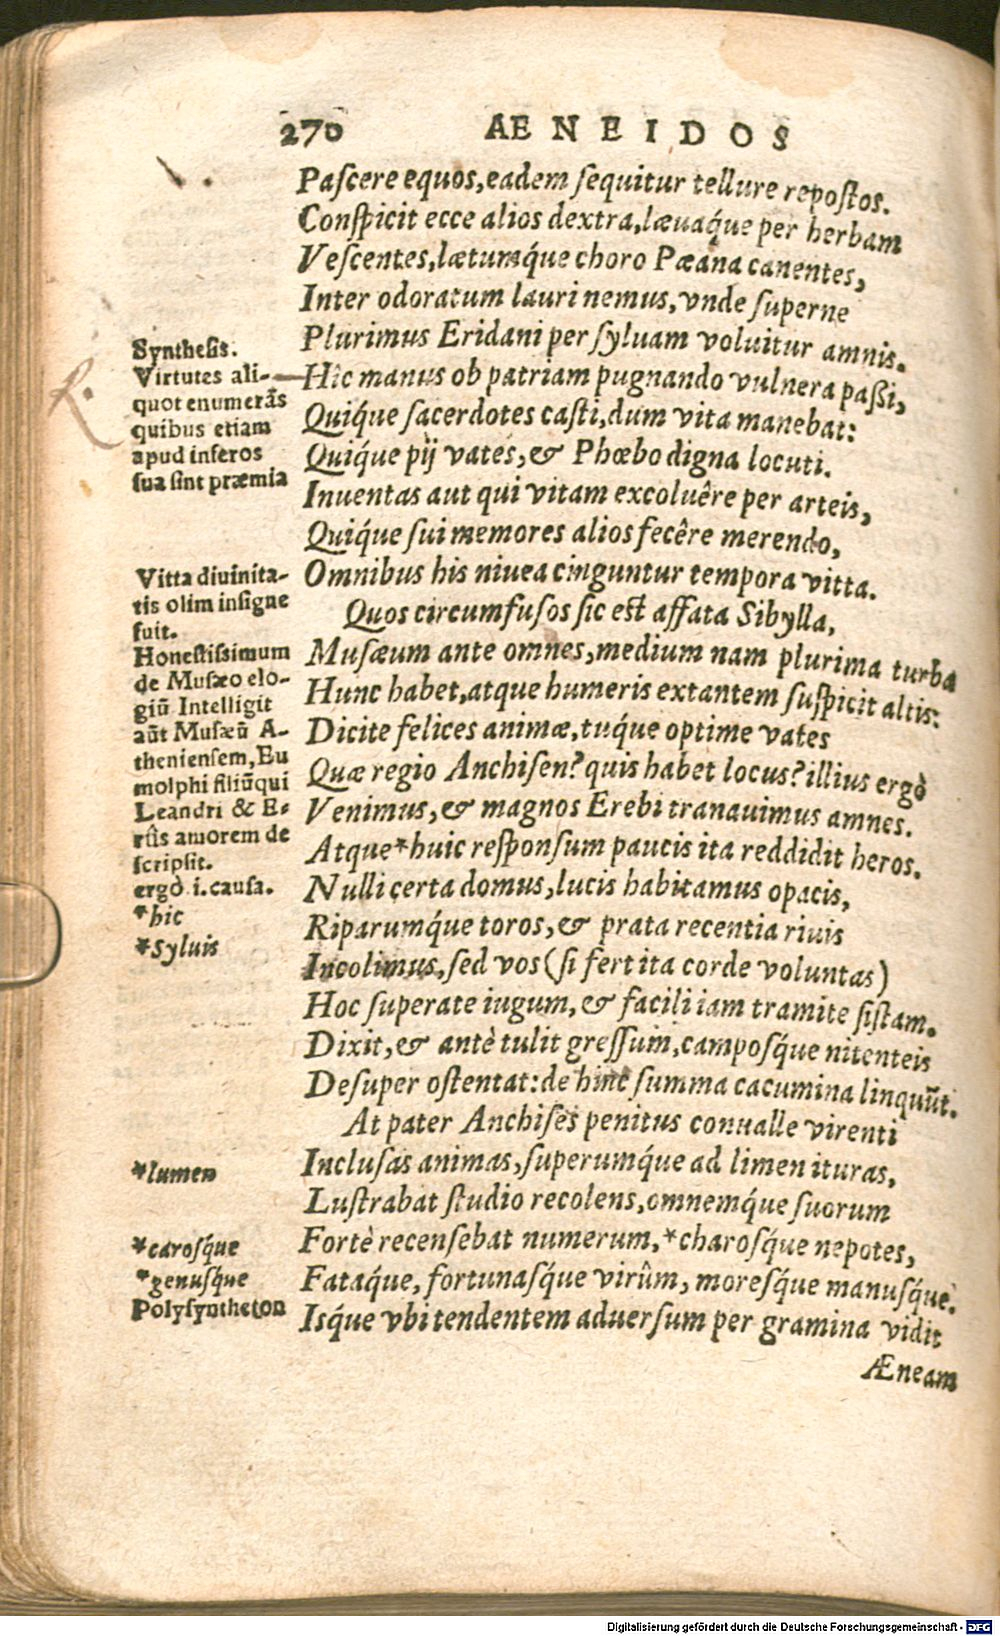 270 AENEIDOS
Paſcere equos, eadem ſequitur tellure repoſtos.
Conſpicit ecce alios dextra, læuaq́ue per herbam
Veſcentes, lætumq́ue choro Pæana canentes,
Inter odoratum lauri nemus, vnde ſuperne
Plurimus Eridani per ſyluam voluitur amnis.
Hîc manus ob patriam pugnando vulnera paßi,
Quiq́ue ſacerdotes caſti, dum vita manebat:
Quiq́ue pij vates, & Phœbo digna locuti.
Inuentas aut qui vitam excoluêre per arteis,
Quiq́ue ſui memores alios fecêre merendo,
Omnibus his niuea cinguntur tempora vitta.
Quos circumfuſos ſic est affata Sibylla,
Muſæum ante omnes, medium nam plurima turba
Hunc habet, atque humeris extantem ſuſpicit altis:
Dicite felices animæ, tuq́ue optime vates
Quæ regio Anchiſen? quis habet locus? illius ergò
Venimus, & magnos Erebi tranauimus amnes.
Atque *huic reſponſum paucis ita reddidit heros.
Nulli certa domus, lucis habitamus opacis,
Riparumq́ue toros, & prata recentia riuis
Incolimus, ſed vos (ſi fert ita corde voluntas)
Hoc ſuperate iugum, & facili iam tramite ſiſtam.
Dixit, & antè tulit greſſum, campoſq́ue nitenteis
Deſuper oſtentat: de hinc ſumma cacumina linquūt.
At pater Anchiſes penitus conualle virenti
Incluſas animas, ſuperumq́ue ad limen ituras,
Luſtrabat ſtudio recolens, omnemq́ue ſuorum
Fortè recenſebat numerum, *charoſq́ue nepotes,
Fataq́ue, fortunaſq́ue virûm, moreſq́ue manuſq́ue.
Iſq́ue vbi tendentem aduerſum per gramina vidit
Æneam
Syntheſis.
Virtutes ali-
quot enumerās
quibus etiam
apud inferos
ſua ſint præmia
Vitta diuinita-
tis olim inſigne
fuit.
Honeſtiſsimum
de Muſæo elo-
giū Intelligit
aūt Muſæū A-
thenienſem, Eu
molphi filiū qui
Leandri & E-
rûs amorem de
ſcripſit.
ergò .i. cauſa.
*hic
*Syluis
*lumen
*caroſq́ue
*genuſq́ue
Polyſyntheton
Digitalisierung gefördert durch die Deutsche Forschungsgemeinschaft - DFG